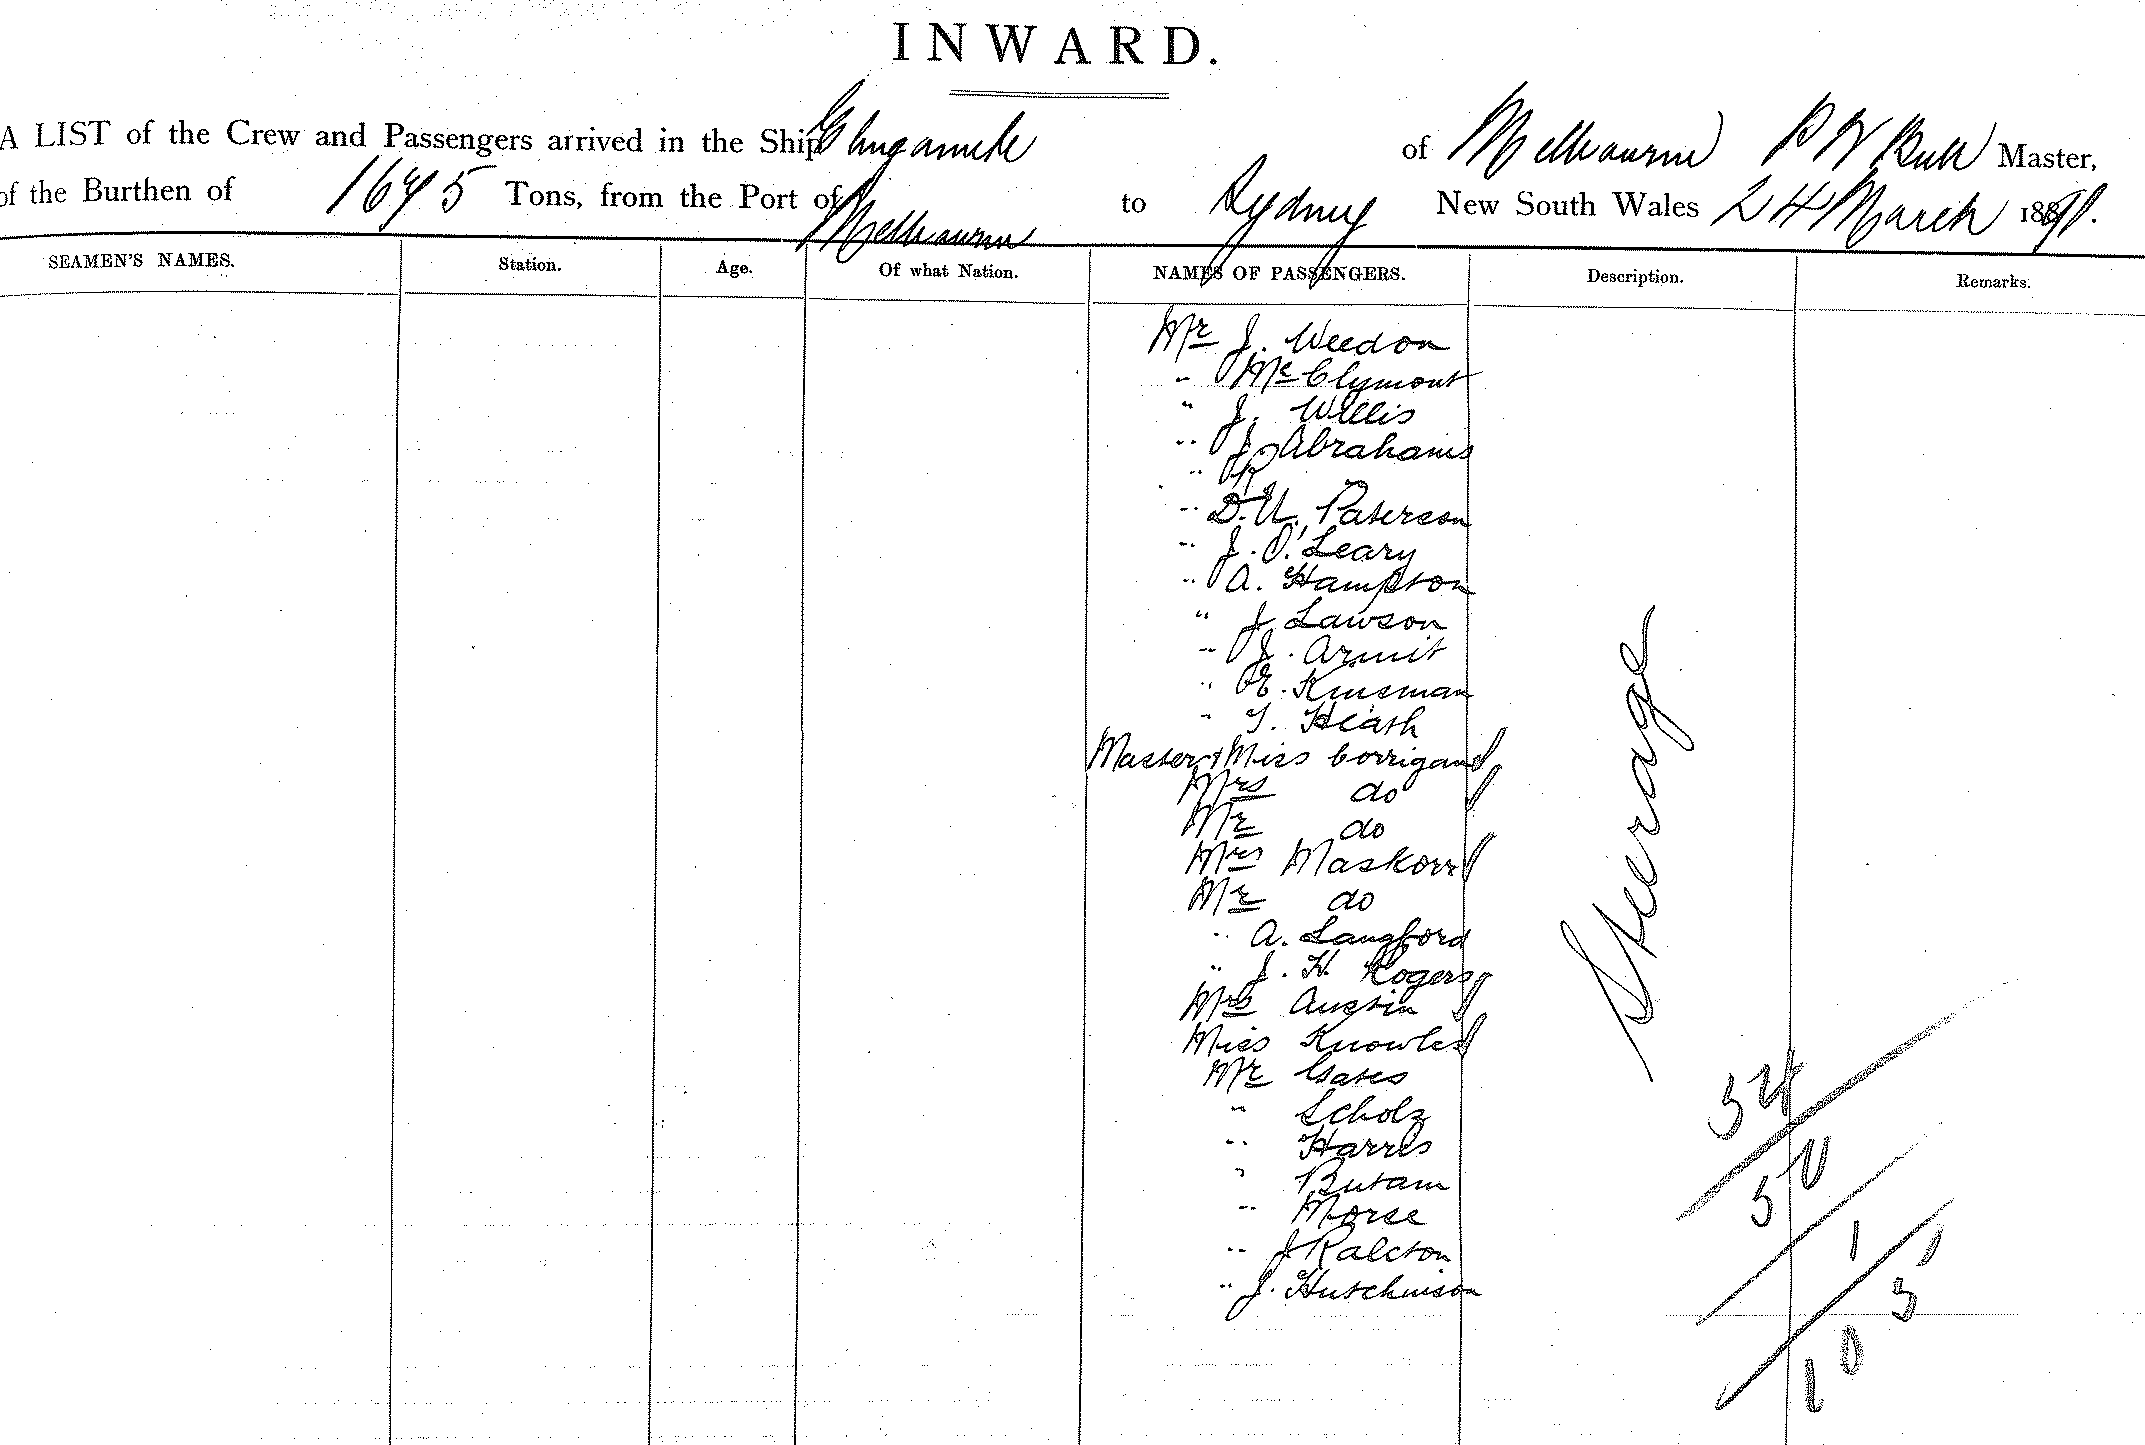 INWARD.
A LIST of the Crew and Passengers arrived in the Ship of Melbourne P W Bull Master,
of the Burthen of Tons, from the Port of Melbourne to Sydney New South Wales 24 March
SEAMEN'S NAMES. Station. Age. Of what Nation. NAMES OF PASSENGERS. Description. Remarks.
Mr J. Weedon
" McClymont
" J. Willis
" J Abrahams
" R
" D. U. Paterson
" J. O'Leary
" A. Hampton
" J Lawson
" J. Armit
" E. Kinsman
" T. Heath
Master & Miss Corrigan
Mrs do
Mr do
Mrs Maskorr
Mr do
" A. Langford
" J. H. Rogers
Mrs Austin
Miss Knowles
Mr Gates
" Scholz
" Harris
" Butam
" Morse
" J Ralston
" J. Hutchinson
Steerage